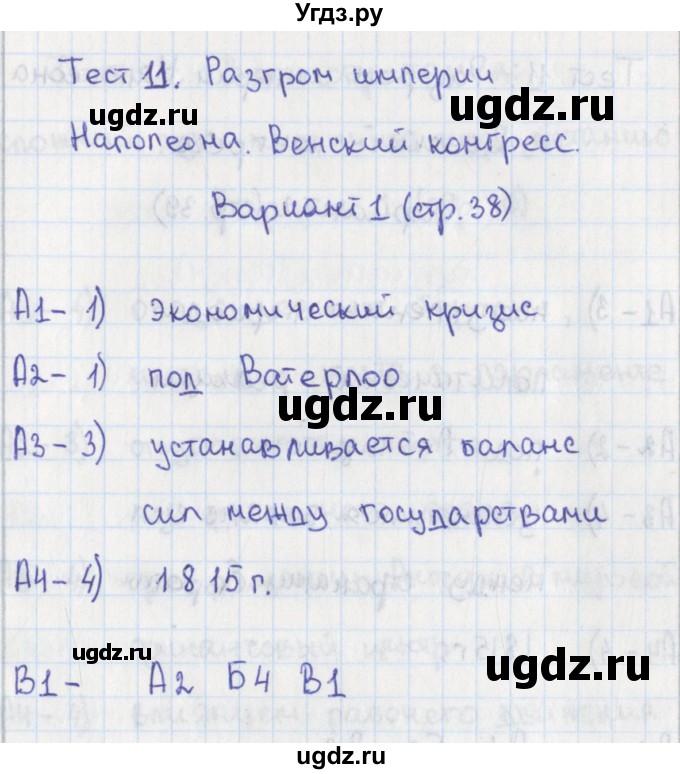 Угдз.ру
Тест 11. Разгром империи
ugdz.ru
Наполеона. Венский конгресс.
ugdz.ru
Вариант 1 (стр. 38)
А1 - 1) экономический кризис
А2 - 1) под Ватерлоо
ugdz.ru
А3 - 3) устанавливается баланс
сил между государствами
А4 - 4) 1815 г.
ugdz.ru
ugdz.ru
В1 - А2 Б4 В1
ugdz.ru